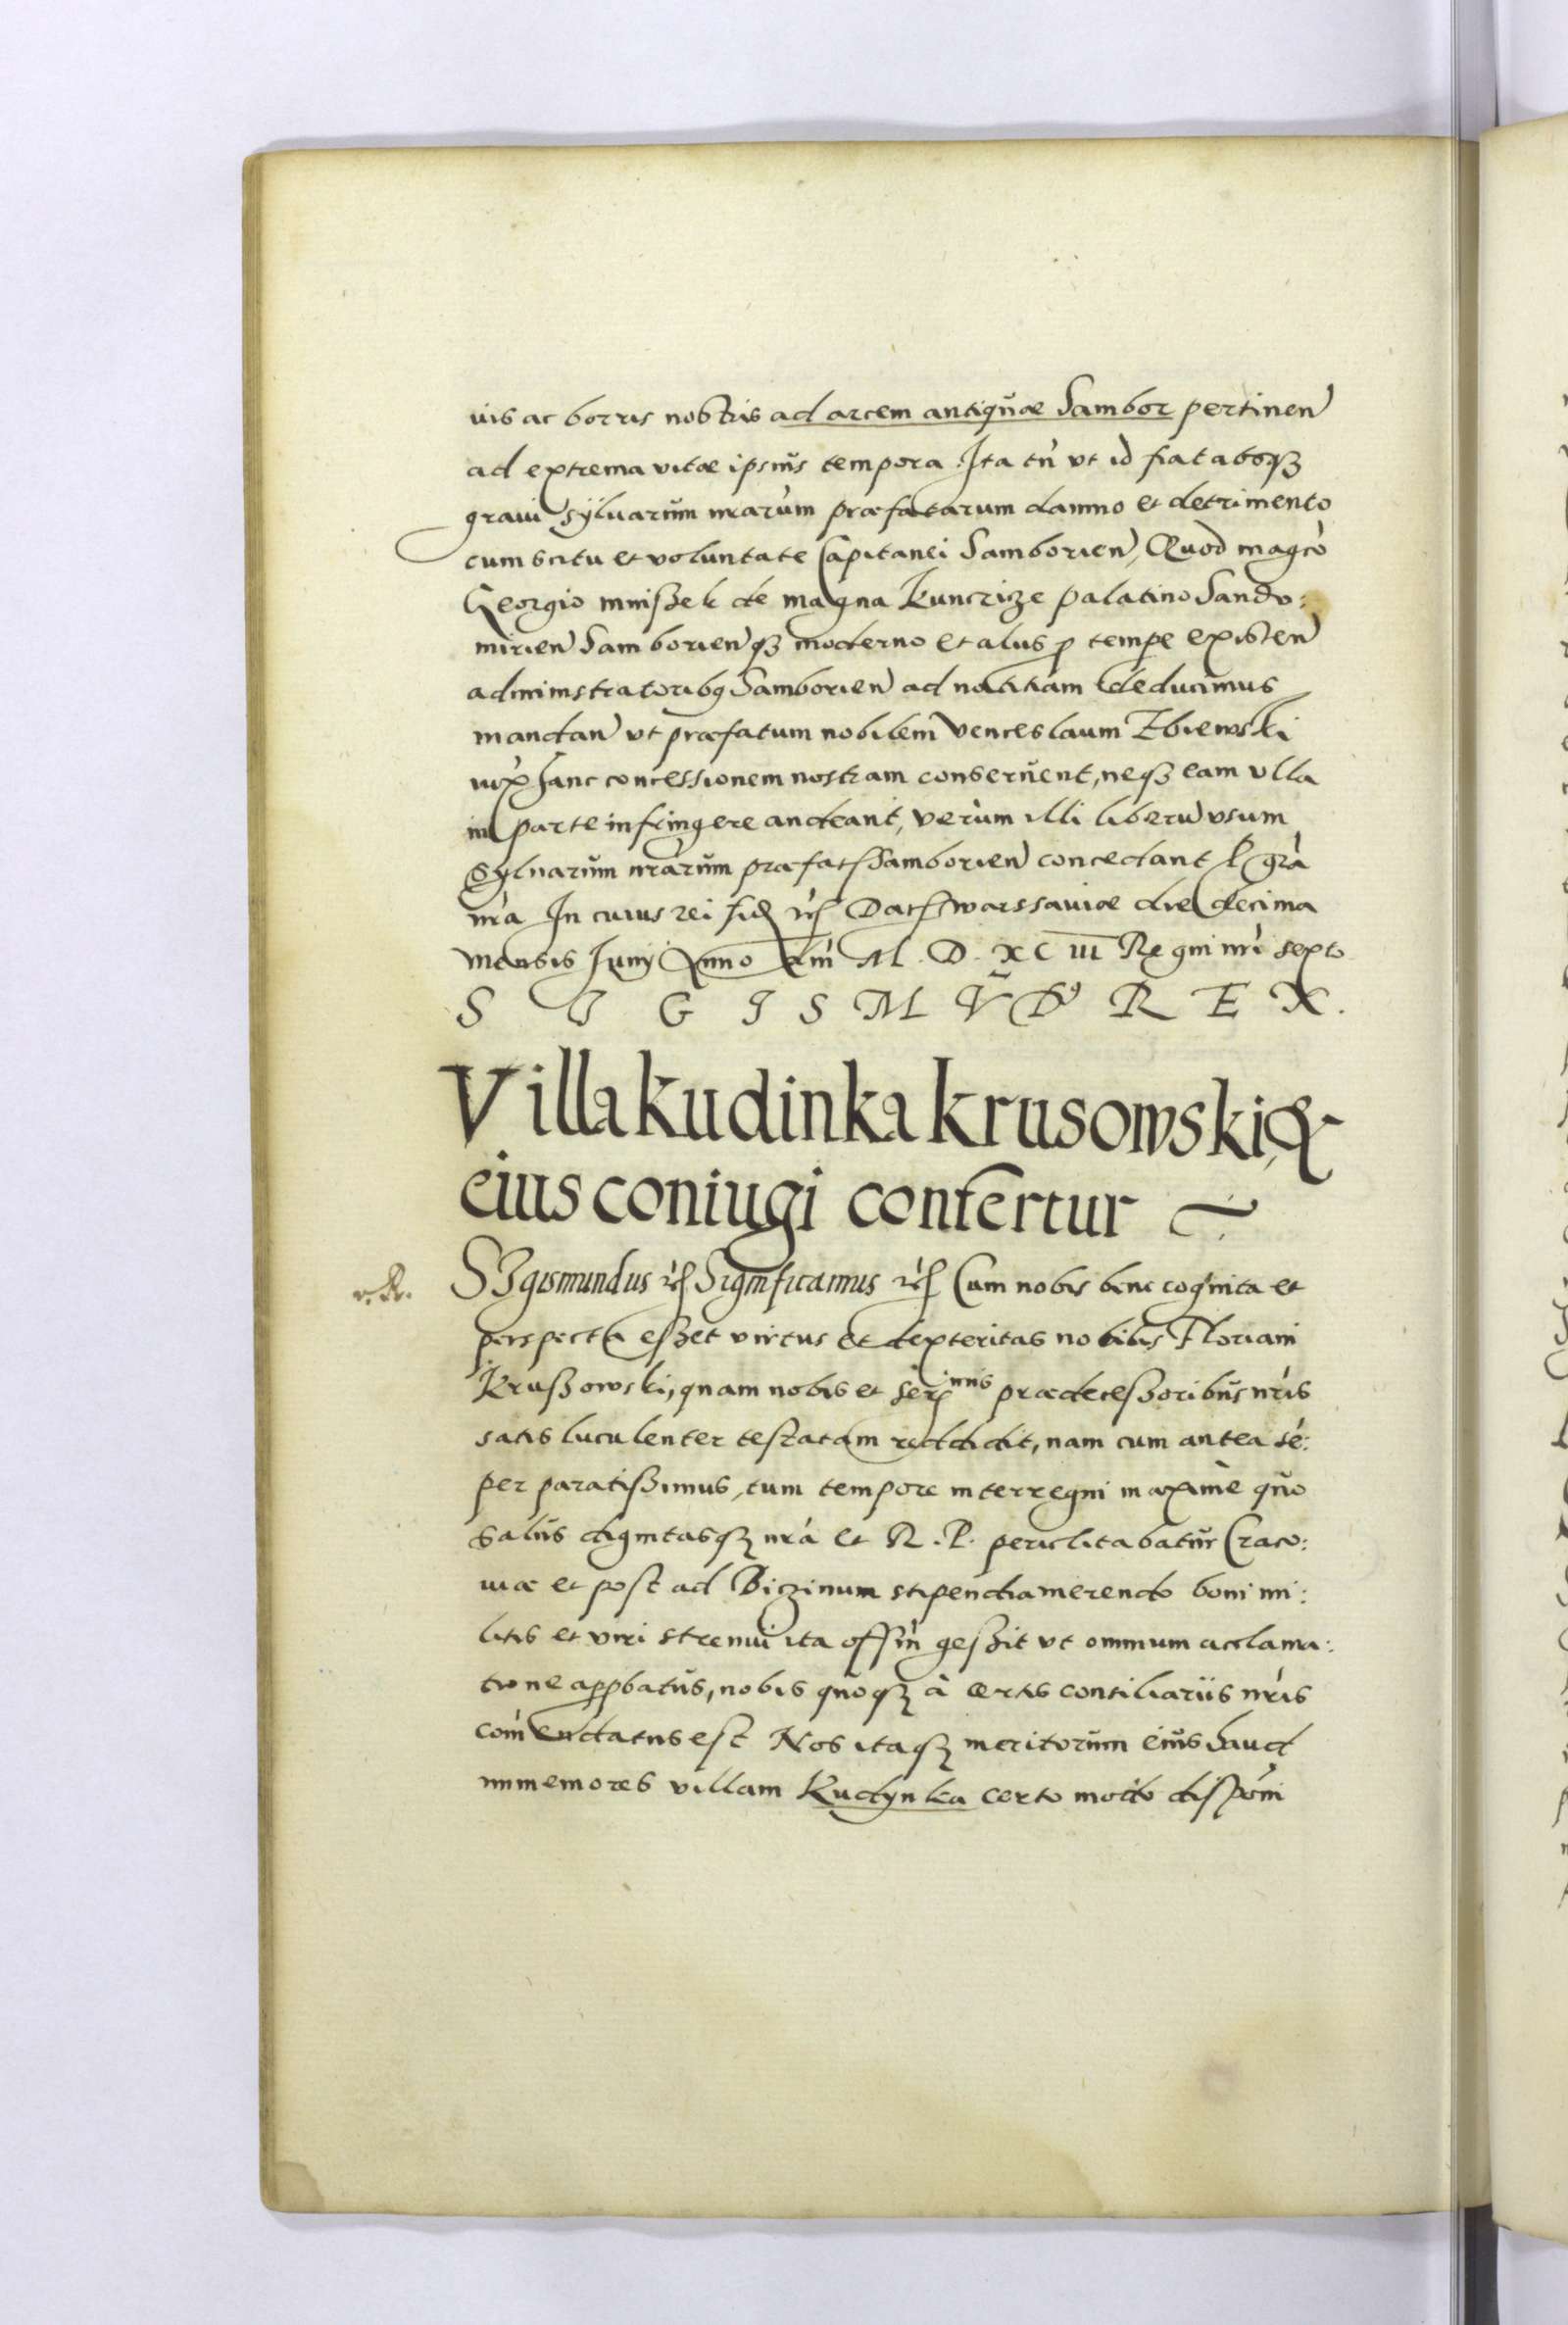 uis ac borris nostris ad arcem antiquæ Sambor pertinen
ad extrema vitæ ipsius tempora. Ita tñ vt id fiat absqȝ
graui syluarum nrarum præfatarum damno et detrimento
cum scitu et voluntate Capitanei Samborien, Quod magco
Georgio mniszek de magna Kunczize palatino Sando:
mirien Samborienqȝ moderno et alijs p tempe existen
administratoribȝ Samborien ad notitiam deducimus
mandan vt præfatum nobilem venceslaum Zbiewski
iuxta hanc concessionem nostram conseruent, neqȝ eam vlla
in parte infringere audeant, verum illi liberũ vsum
Syluarum nrarum præfat Samborien concedant p gra
nra In cuius rei fid etc Dat warssauiæ die decima
mensis Junij Anno dni M. D. XC III Regni nri sexto
S I G I S M V D9 R E X.
Villa kudinka krusowski et
eius coniugi confertur
r. R. SIgismundus etc Significamus etc Cum nobis bene cognita et
perspecta esset virtus et dexteritas nobilis Floriani
Krussowski, quam nobis et Ser imis prædecessoribus nris
satis luculenter testatam reddidit, nam cum antea sē:
per paratissimus, tum tempore interregni maxime quo
salus dignitasqȝ nra et R. P. periclitabatur Craco:
uiæ et post ad Biczinum stipendia merendo boni mi:
litis et viri strenui ita offm gessit vt omnium acclama:
tione approbatus, nobis quoqȝ à certis consiliarijs nris
comendatus est Nos itaqȝ meritorum eius haud
immemores villam Kudynka certo modo disponi